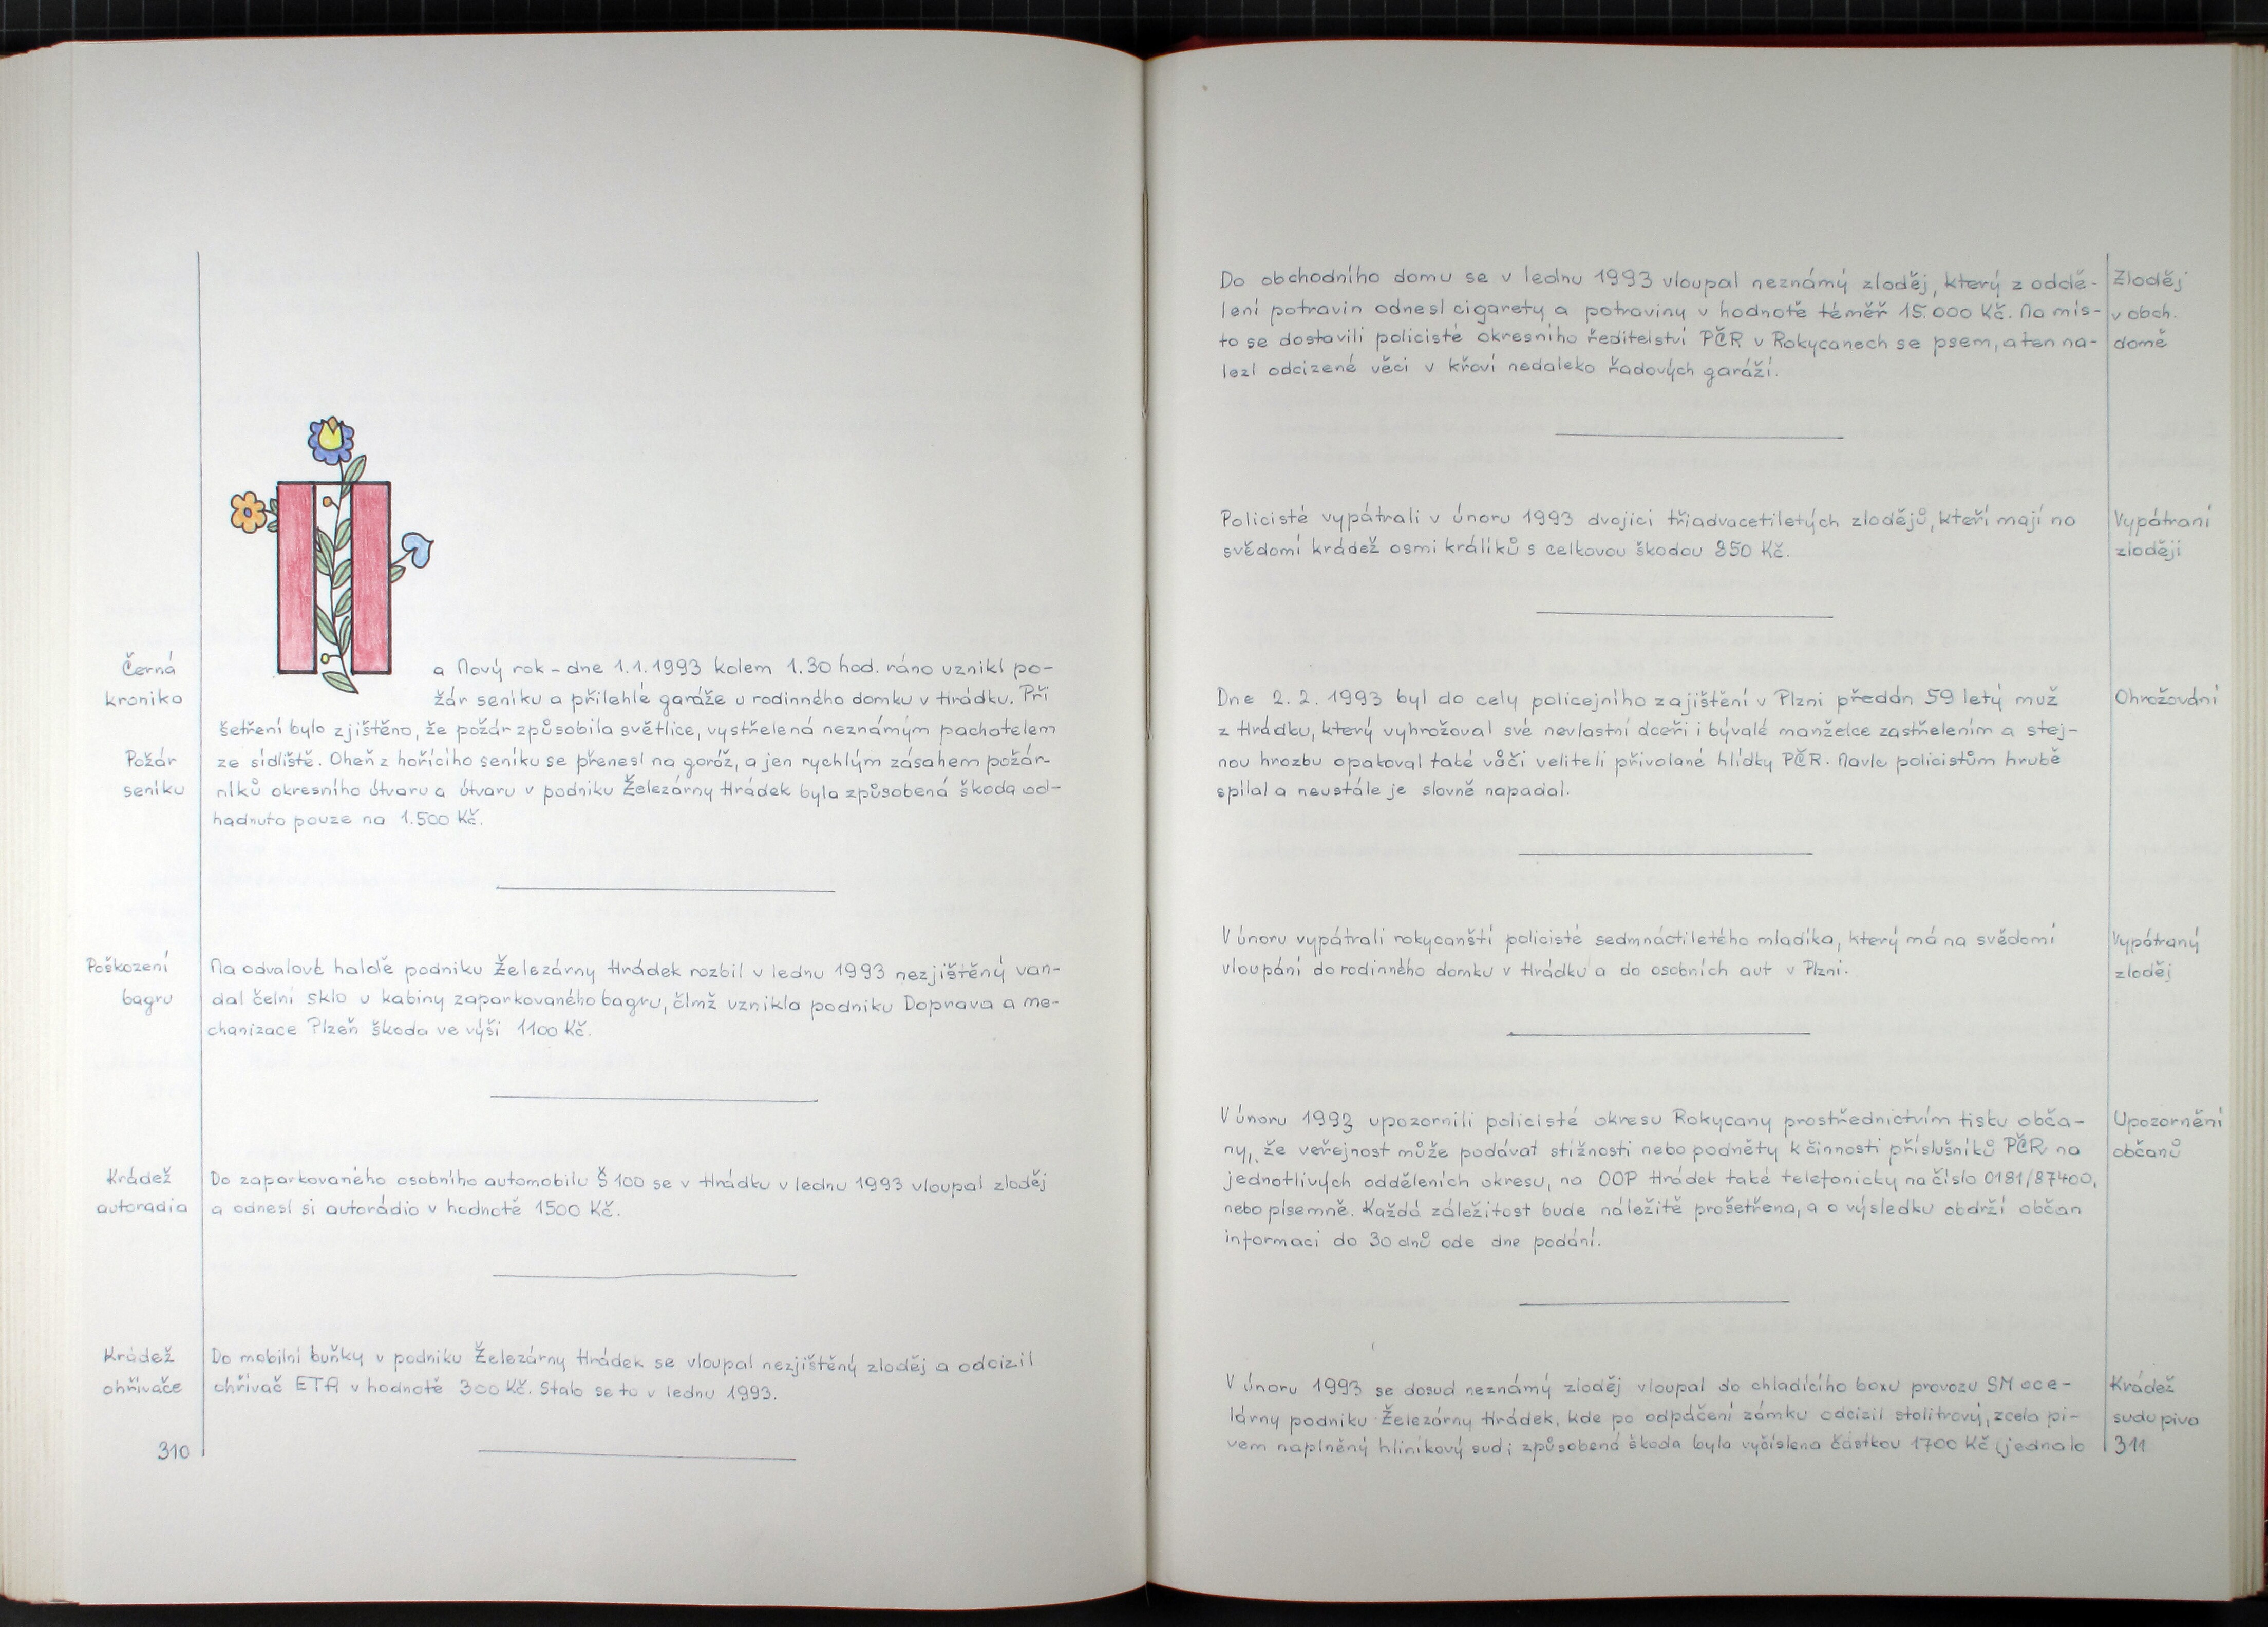 Černá
kronika
Na Nový rok – dne 1.1.1993 kolem 1.30 hod. ráno vznikl po-
žár seníku a přilehlé garáže u rodinného domku v Hrádku. Při
šetření bylo zjištěno, že požár způsobila světlice, vystřelená neznámým pachatelem
Požár
seníku
ze sídliště. Oheň z hořícího seníku se přenesl na garáž, a jen rychlým zásahem požár-
níků okresního útvaru a útvaru v podniku Železárny Hrádek byla způsobená škoda od-
hadnuta pouze na 1.500 Kč.
Poškození
bagru
Na odvalové haldě podniku Železárny Hrádek rozbil v lednu 1993 nezjištěný van-
dal čelní sklo u kabiny zaparkovaného bagru, čímž vznikla podniku Doprava a me-
chanizace Plzeň škoda ve výši 1100 Kč.
Krádež
autoradia
Do zaparkovaného osobního automobilu Š 100 se v Hrádku v lednu 1993 vloupal zloděj
a odnesl si autorádio v hodnotě 1500 Kč.
Krádež
ohřívače
Do mobilní buňky v podniku Železárny Hrádek se vloupal nezjištěný zloděj a odcizil
ohřívač ETA v hodnotě 300 Kč. Stalo se to v lednu 1993.
310
Do obchodního domu se v lednu 1993 vloupal neznámý zloděj, který z oddě-
lení potravin odnesl cigarety a potraviny v hodnotě téměř 15.000 Kč. Na mís-
to se dostavili policisté okresního ředitelství PČR v Rokycanech se psem, a ten na-
lezl odcizené věci v křoví nedaleko řadových garáží.
Zloděj
v obch.
domě
Policisté vypátrali v únoru 1993 dvojici třiadvacetiletých zlodějů, kteří mají na
svědomí krádež osmi králíků s celkovou škodou 850 Kč.
Vypátraní
zloději
Dne 2.2. 1993 byl do cely policejního zajištění v Plzni předán 59 letý muž
z Hrádku, který vyhrožoval své nevlastní dceři i bývalé manželce zastřelením a stej-
nou hrozbu opakoval také vůči veliteli přivolané hlídky PČR. Navíc policistům hrubě
spílal a neustále je slovně napadal.
Ohrožování
V únoru vypátrali rokycanští policisté sedmnáctiletého mladíka, který má na svědomí
vloupání do rodinného domku v Hrádku a do osobních aut v Plzni.
Vypátraný
zloděj
V únoru 1993 upozornili policisté okresu Rokycany prostřednictvím tisku obča-
ny, že veřejnost může podávat stížnosti nebo podněty k činnosti příslušníků PČR na
jednotlivých odděleních okresu, na OOP Hrádek také telefonicky na číslo 0181/87400,
nebo písemně. Každá záležitost bude náležitě prošetřena, a o výsledku obdrží občan
informaci do 30 dnů ode dne podání.
Upozornění
občanů
V únoru 1993 se dosud neznámý zloděj vloupal do chladícího boxu provozu SM oce-
lárny podniku Železárny Hrádek, kde po odpáčení zámku odcizil stolitrový, zcela pi-
vem naplněný hliníkový sud; způsobená škoda byla vyčíslena částkou 1700 Kč (jednalo
Krádež
sudu piva
311